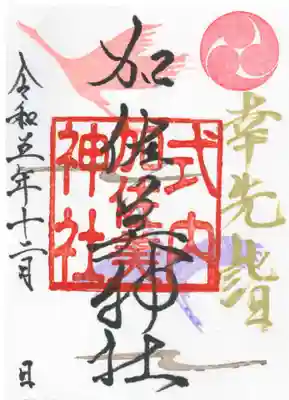 幸先詣
加佐美神社
式内
加佐美
神社
令和五年十二月 日